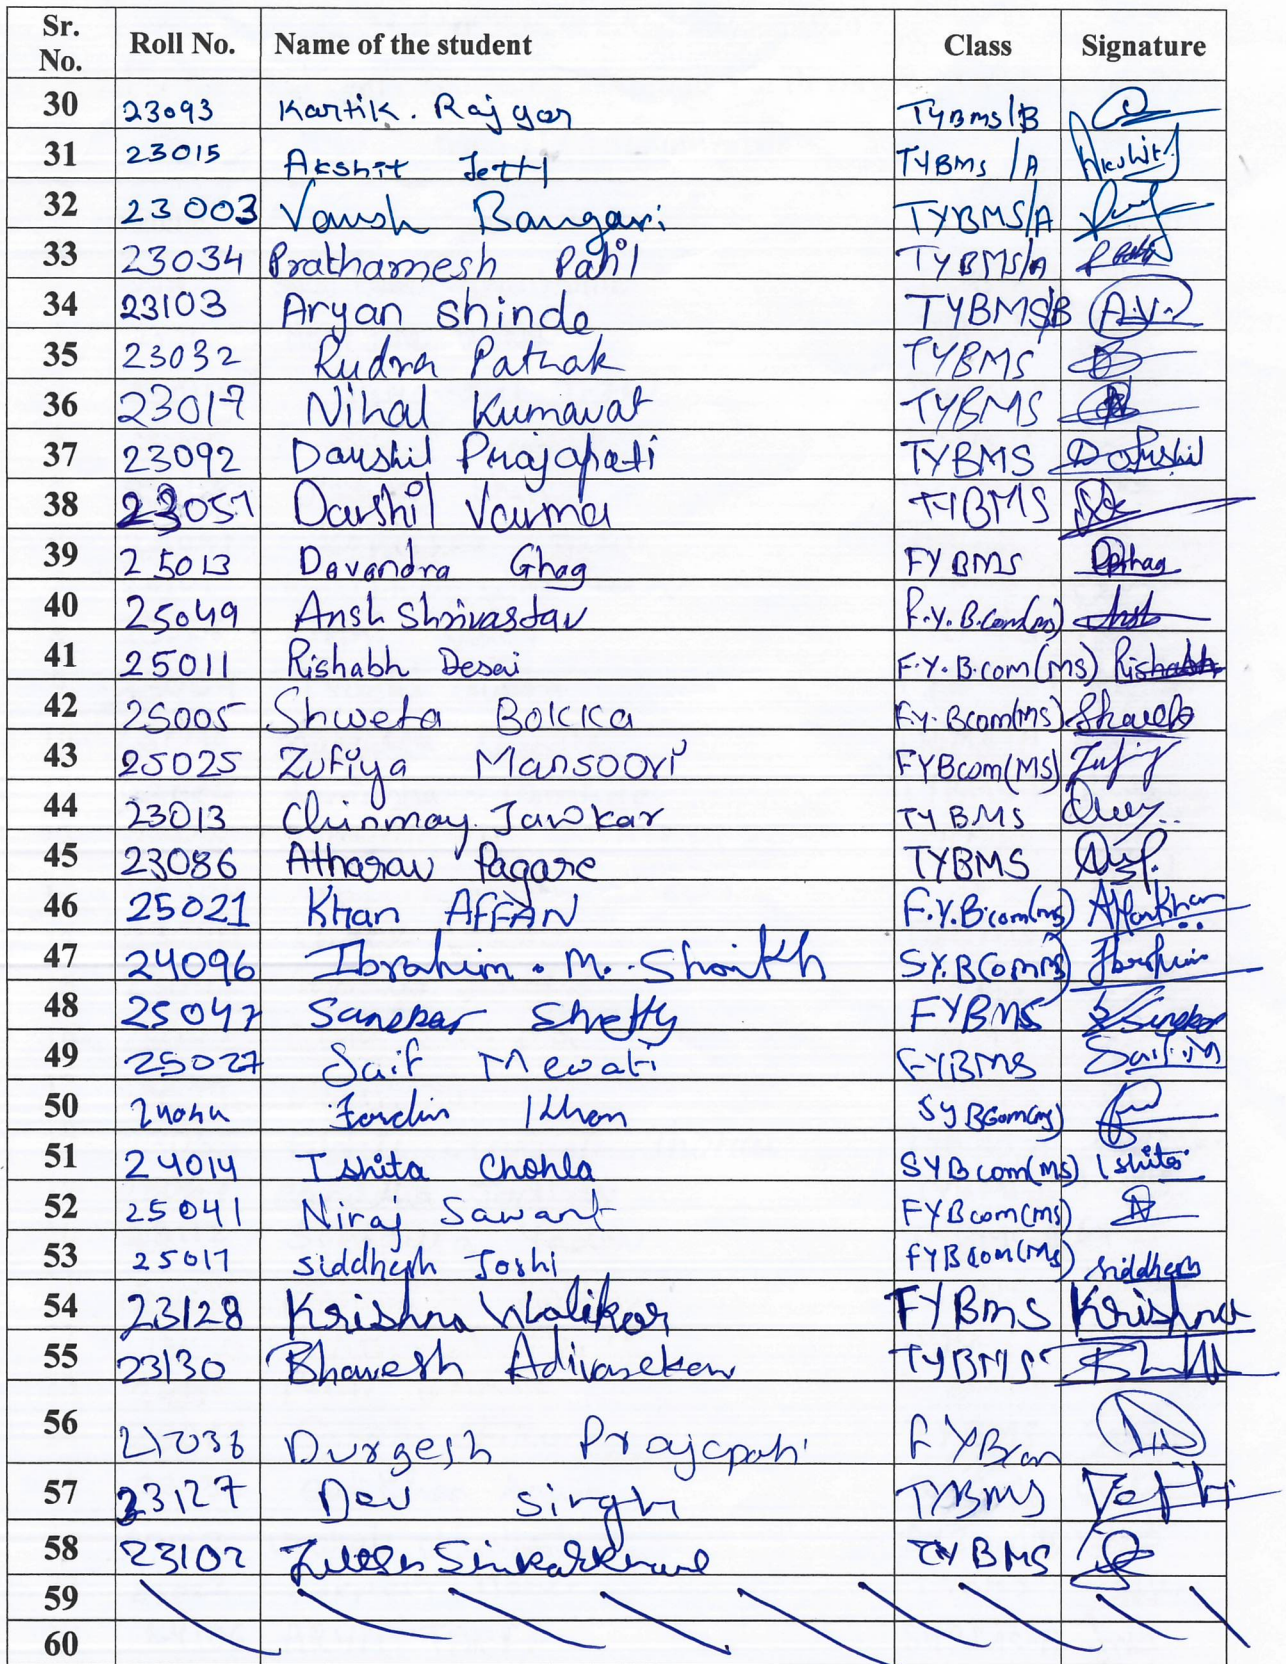 Sr. No. Roll No. Name of the student Class Signature
30 23093 Kartik. Rajgor TYBMS/B
31 23015 Akshit Jetti TYBMS /A Akshit
32 23003 Vansh Bangari TYBMS/A
33 23034 Prathamesh Patil TYBMS/A
34 23103 Aryan Shinde TYBMS/B
35 23032 Rudra Pathak TYBMS
36 23017 Nihal Kumavat TYBMS
37 23092 Darshil Prajapati TYBMS Darshil
38 23057 Darshil Varma TYBMS
39 25013 Devendra Ghag FYBMS
40 25049 Ansh Shrivastav F.Y.B.Com(ms) Ansh
41 25011 Rishabh Desai F.Y.B.com(MS) Rishabh
42 25005 Shweta Bokka F.Y.Bcom(MS) Shweta
43 25025 Zufiya Mansoori FYBcom(MS)
44 23013 Chinmay Jawkar TYBMS
45 23086 Atharav Pagare TYBMS
46 25021 Khan AFFAN F.Y.B.com(ms) Affan Khan
47 24096 Ibrahim . M. Shaikh Ibrahim
48 25047 Sanskar Shetty FYBMS
49 25027 Saif Mewati FYBMS
50 Khan SYBCom(ms)
51 24014 Ishita Chohla SYBcom(MS) Ishita
52 25041 Niraj Sawant FYBcom(MS)
53 25017 Siddhesh Joshi FYBcom(MS) Siddhesh
54 23128 Krishna Walikar FYBMS Krishna
55 23130 Bhavesh TYBMS
56 Durgesh Prajapati
57 23127 Dev Singh TYBMS
58 23102 TYBMS
59
60